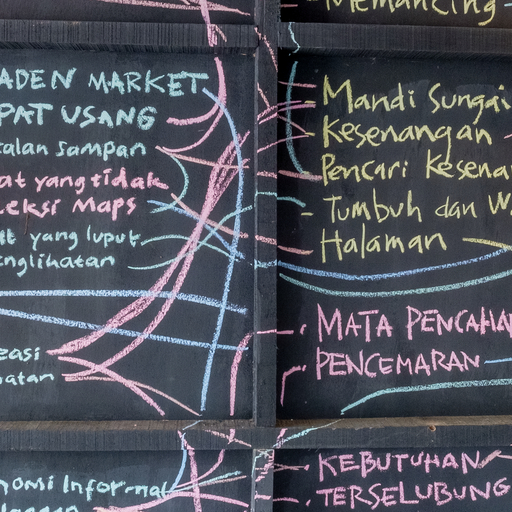 Memancing
ADEN MARKET
PAT USANG
alan sampan
at yang tidak
eksi Maps
at yang luput
nglihatan
easi
batan
nomi Informal
- Mandi Sungai
- Kesenangan
Pencari Kesena
- Tumbuh dan W
Halaman
- MATA PENCAHA
PENCEMARAN
- KEBUTUHAN
- TERSELUBUNG